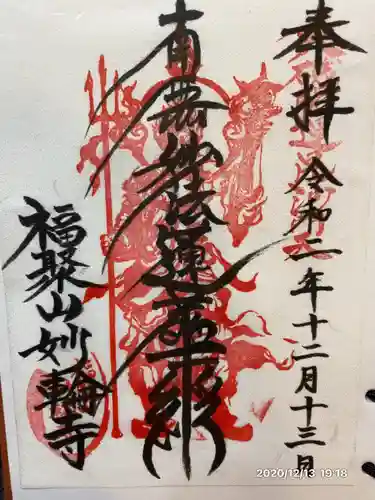 奉拝
令和二年十二月十三日
南無妙法蓮華経
福聚山妙輪寺
2020/12/13 19:18